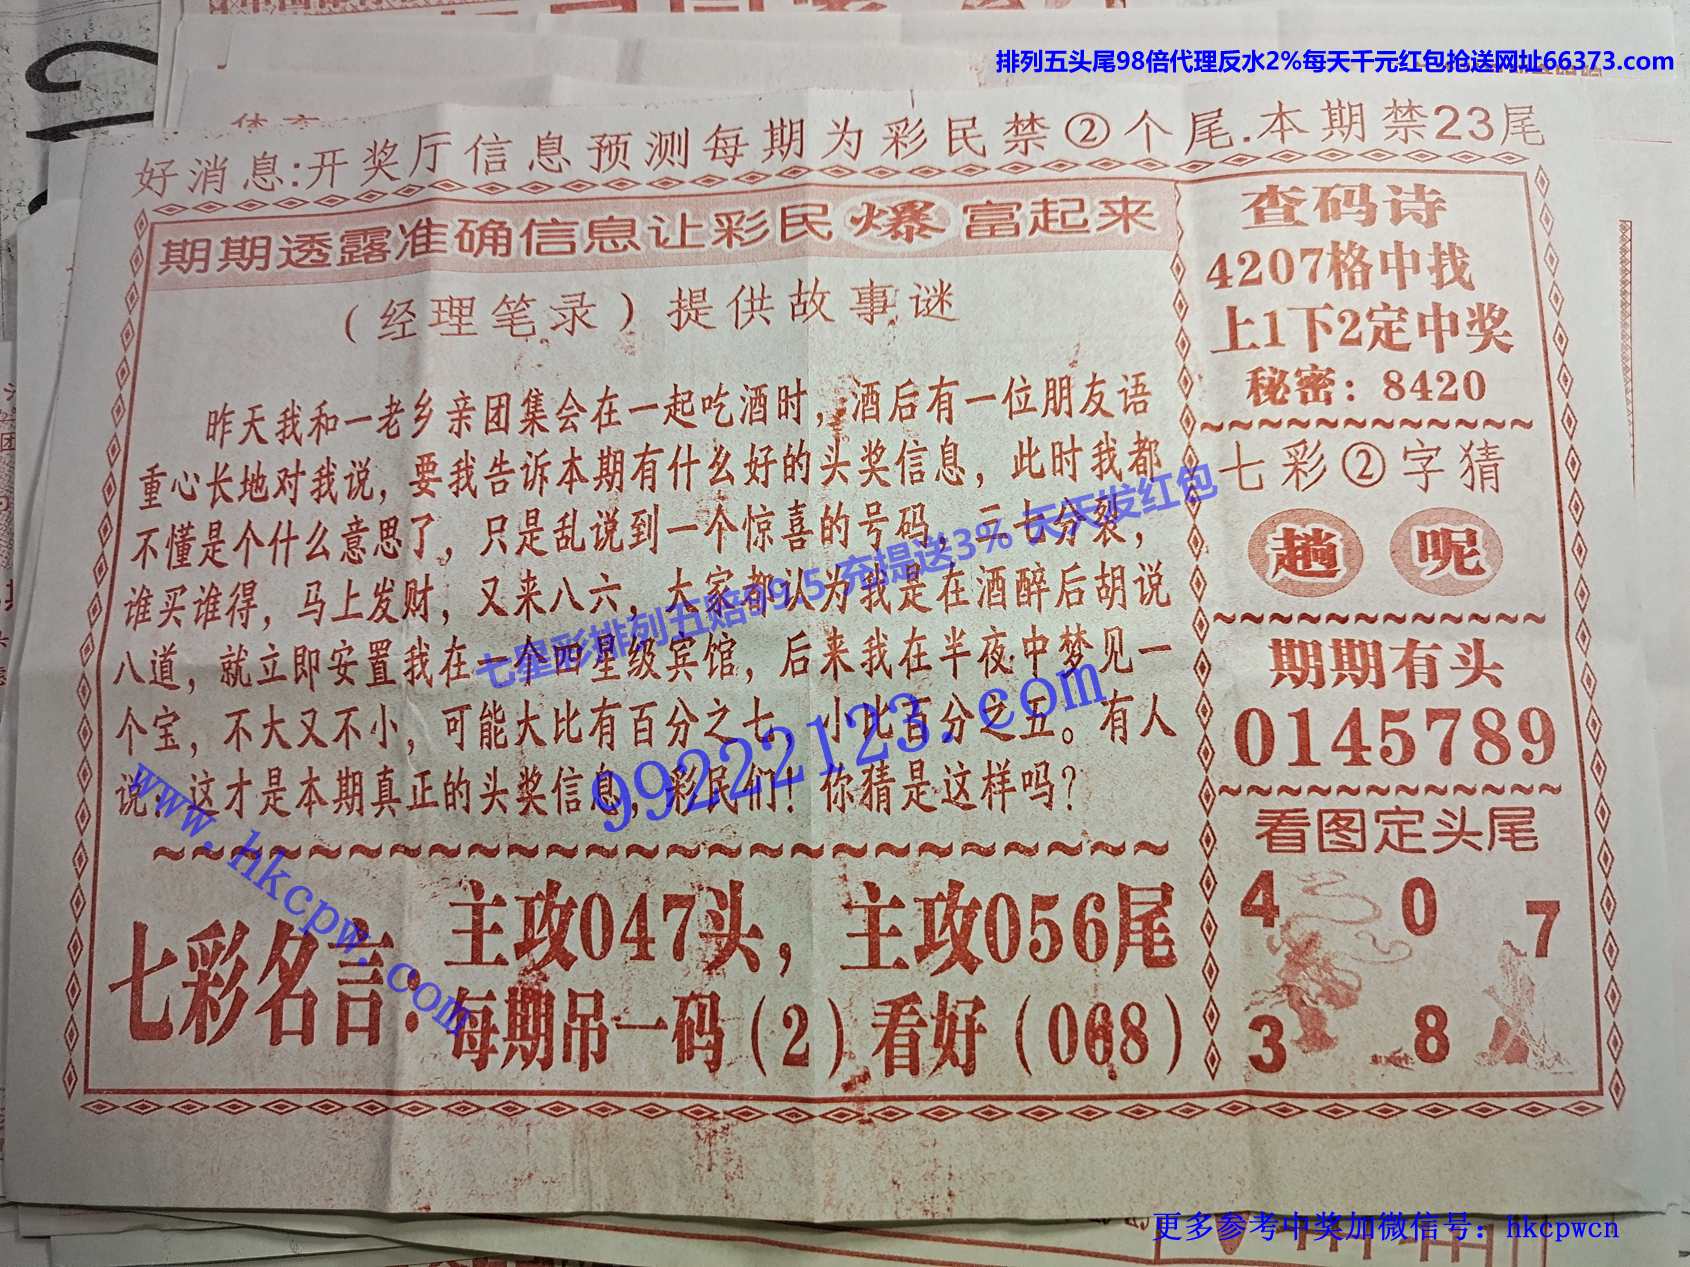 排列五头尾98倍代理反水2%每天千元红包抢送网址66373.com
好消息:开奖厅信息预测每期为彩民禁②个尾.本期禁23尾
期期透露准确信息让彩民爆富起来
(经理笔录)提供故事谜
昨天我和一老乡亲团集会在一起吃酒时，酒后有一位朋友语
重心长地对我说，要我告诉本期有什么好的头奖信息，此时我都
不懂是个什么意思了，只是乱说到一个惊喜的号码，三七分裂，
谁买谁得，马上发财，又来八六，大家都认为我是在酒醉后胡说
八道，就立即安置我在一个四星级宾馆，后来我在半夜中梦见一
个宝，不大又不小，可能大比有百分之七，小比百分之五。有人
说：这才是本期真正的头奖信息，彩民们！你猜是这样吗？
七彩名言：
主攻047头，主攻056尾
每期吊一码(2)看好(068)
查码诗
4207格中找
上1下2定中奖
秘密：8420
七彩②字猜
趟 呢
期期有头
0145789
看图定头尾
4 0 7
3 8
七星彩排列五赔99.5 充提送3% 天天发红包
99222123.com
www.hkcpw.com
更多参考中奖加微信号：hkcpwcn